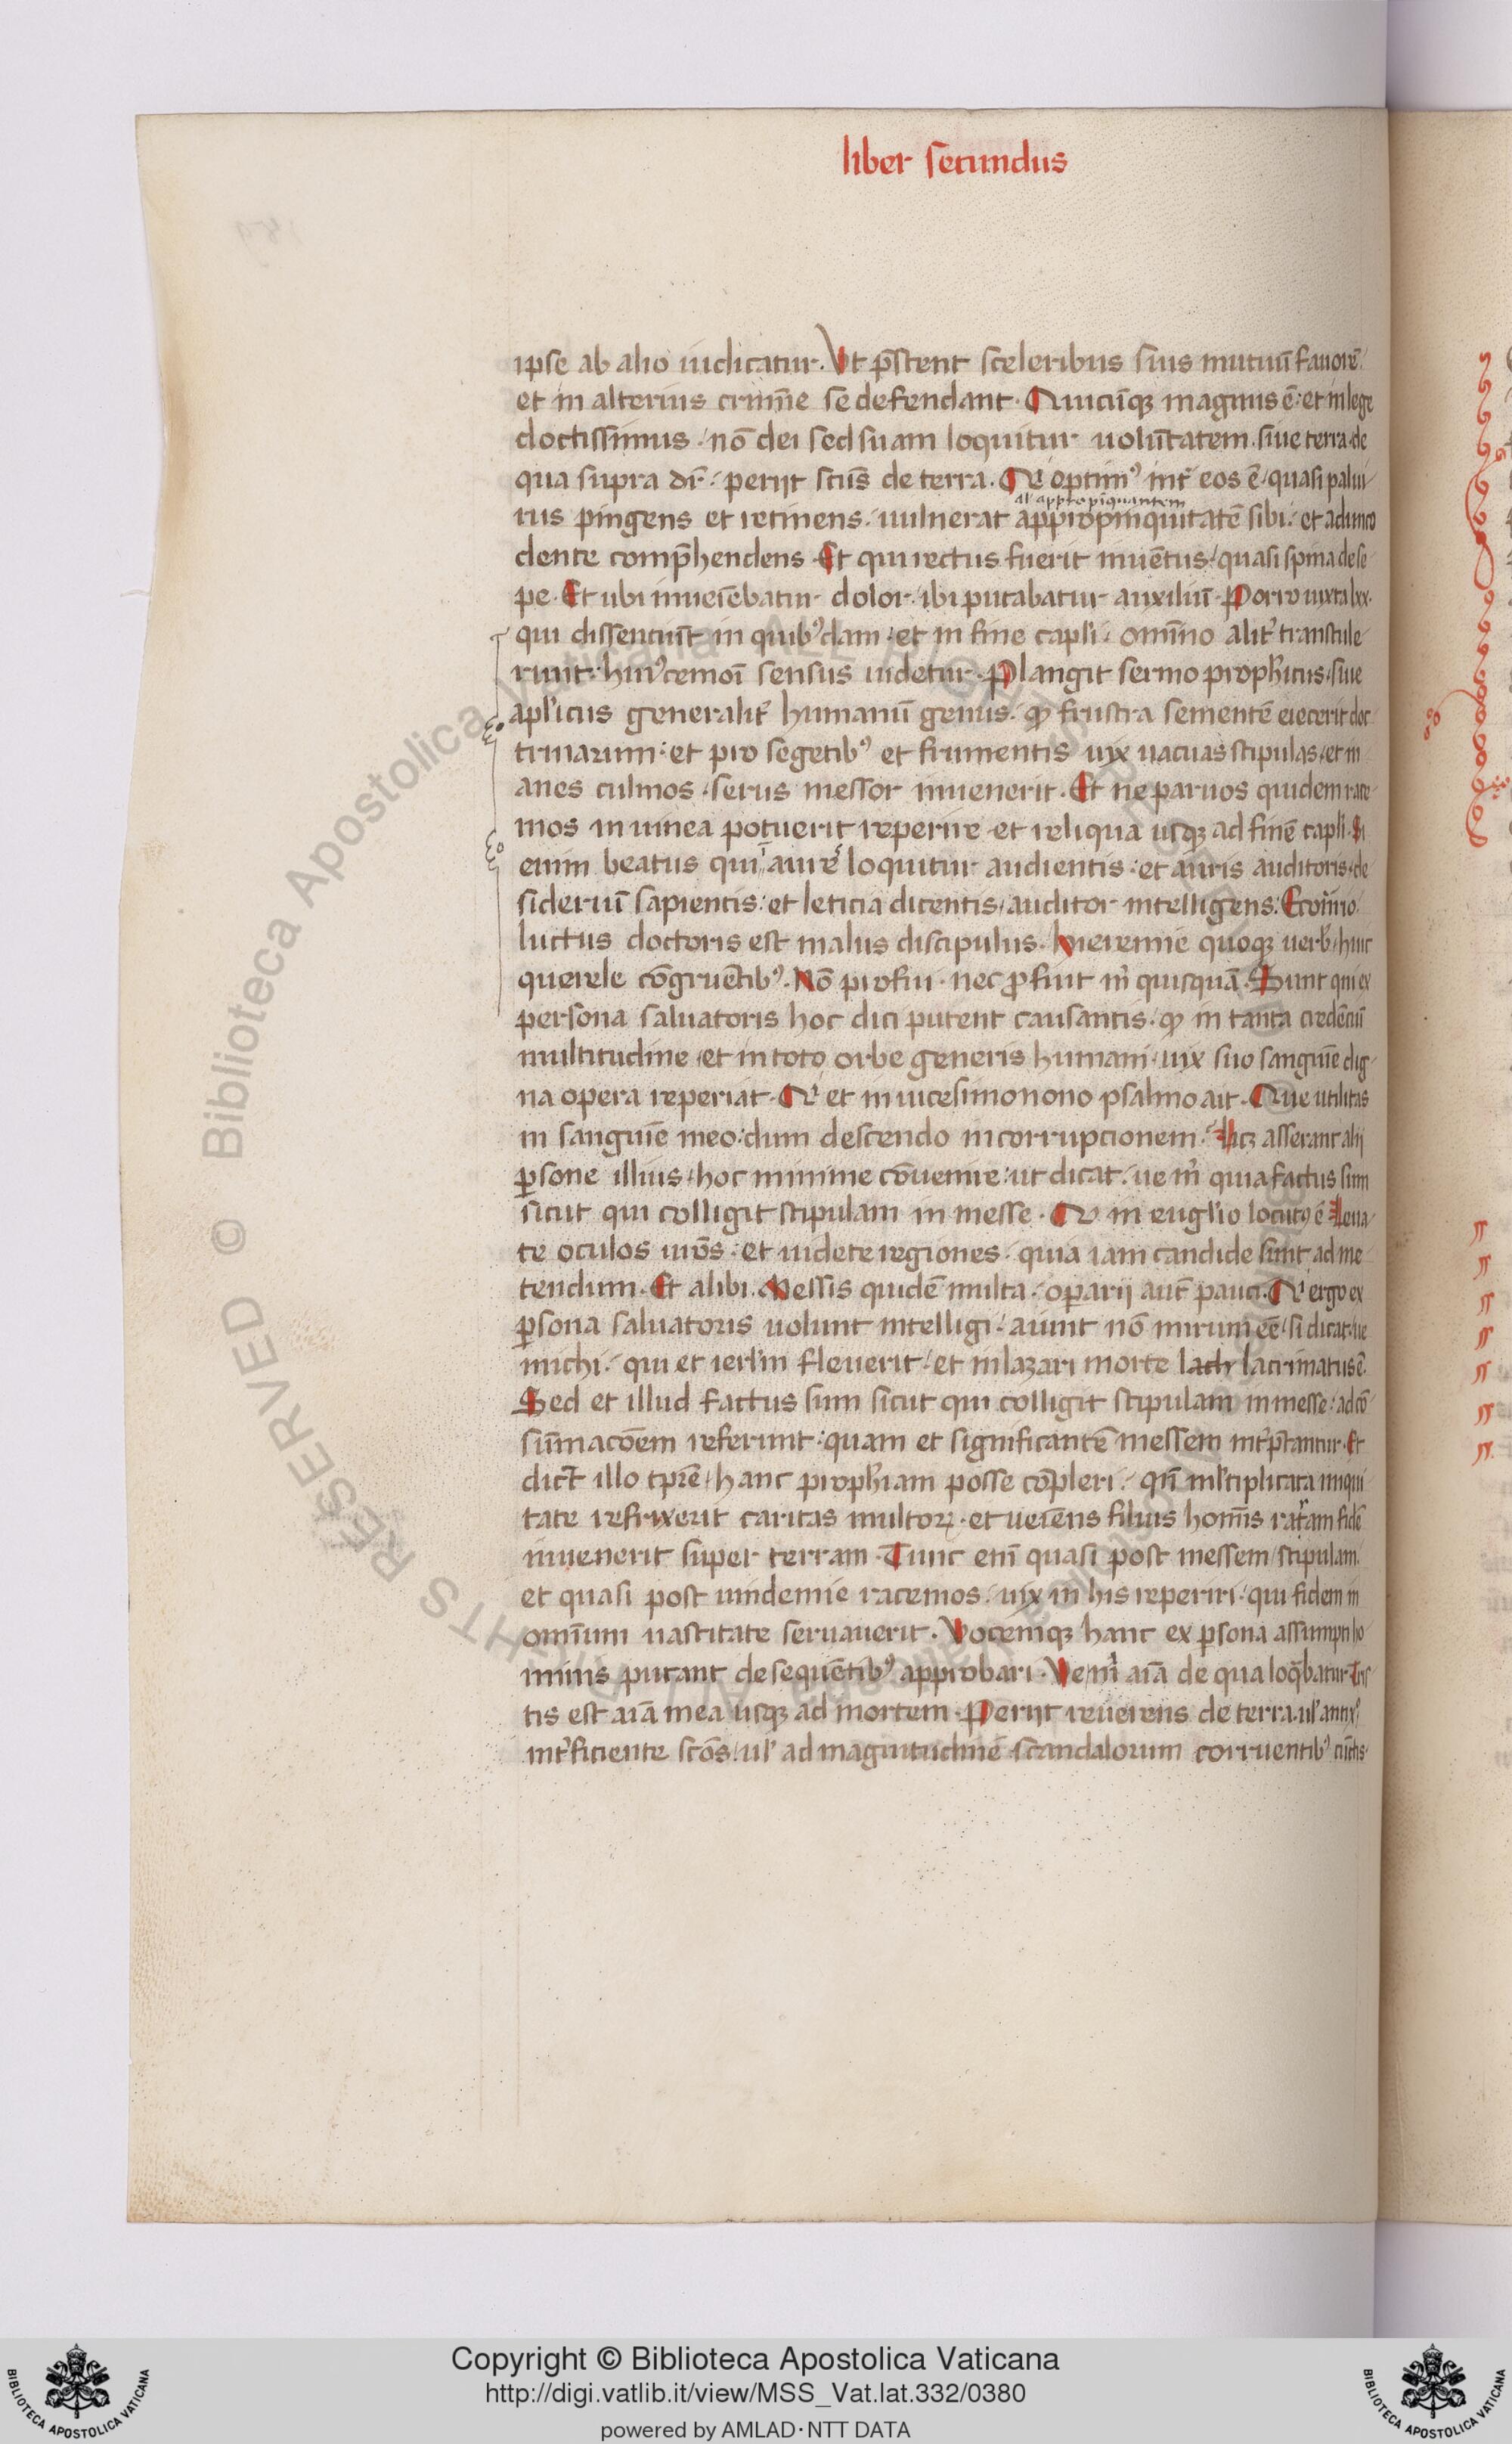 liber secundus
ipse ab alio iudicatur. Ut p̄stent sceleribus suis mutuū fauorē.
et in alterius crimīe se defendant. Quicūqꝫ magnus ē: et in lege
doctissimus. nō dei sed suam loquitur uolūtatem. siue terra. de
qua supra dr̄. perijt scūs de terra. Qᷓ optimꝰ int̓ eos ē quasi paliu
al' appropīquantem
rus pingens et retinens. uulnerat appropinquitatē sibi. et adunco
dente comp̄hendens. Et qui rectus fuerit inuētus. quasi spina de se
pe. Et ubi inuerēbatur dolor. ibi putabatur auxiliū. Porro iuxta lxx.
qui dissentiūt in quibꝰdam. et in fine capli. omīno alit̓ transtule
runt. huiꝰcemoī sensus uidetur. Plangit sermo proph̓icus. siue
apl'icus generalit̓ humanū genus. ꝙ frustra sementē eiecerit doc
trinarum: et pro segetibꝰ et frumentis uix uacuas stipulas. et in
anes culmos. serus messor inuenerit. Et ne paruos quidem race
mos in uinea potuerit reperire et reliqua usqꝫ ad finē capli. Si
enim beatus qui ī aurē loquitur audientis: et auris auditoris. de
sideriū sapientis: et leticia dicentis. auditor intelligens. Econ̓rio
luctus doctoris est malus discipulus. hieremie quoqꝫ uerb̓ huic
querele cōgruētibꝰ. Nō profui. nec ꝓfuit m̓ quisquā. Sunt qui ex
persona saluatoris hoc dici putent causantis. ꝙ in tanta credēciū
multitudine et in toto orbe generis humani. uix suo sanguīe dig
na opera reperiat. Qᷓ et in uicesimonono psalmo ait. Que utilitas
in sanguīe meo: dum descendo in corrupcionem. Licꝫ asserant alij
ꝑsone illius. hoc minime cōuenire: ut dicat. ue m̓ quia factus sum
sicut qui colligit stipulam in messe. Qᷓ in eugl'io locutꝰ ē Leua
te oculos ur̄os: et uidete regiones. quia iam candide sunt ad me
tendum. Et alibi. Messis quidē multa. oꝑarij aut̄ pauci. Qᷓ ergo ex
ꝑsona saluatoris uolunt intelligi. aiunt nō mirum eē. si dicat. ue
michi. qui et ierl'm fleuerit. et in lazari morte lach lacrimatus ē.
Sed et illud factus sum sicut qui colligit stipulam in messe. ad cō
sūmacōem referunt: quam et significantē messem int̓p̄tantur. Et
dicūt illo tp̄re. hanc proph̓iam posse cōpleri. qn̄ ml'tiplicata iniqui
tate refrixerit caritas multoꝝ. et ueiens filius homīs raram fidē
inuenerit super terram. Tunc enī quasi post messem stipulam.
et quasi post uindemie racemos. uix in his reperiri. qui fidem in
omnium uastitate seruauerit. Vocemqꝫ hanc ex ꝑsona assumpti ho
minis putant de sequētibꝰ approbari. Ve m̓ aīa de qua loq̄batur. Tris
tis est aīa mea usqꝫ ad mortem. Perijt reuerens de terra. ul' antix̓o
int̓ficiente scōs. ul' ad magnitudinē scandalorum corruentibꝰ cūctis.
© Biblioteca Apostolica Vaticana ALL RIGHTS RESERVED
Copyright © Biblioteca Apostolica Vaticana
http://digi.vatlib.it/view/MSS_Vat.lat.332/0380
powered by AMLAD·NTT DATA
BIBLIOTECA APOSTOLICA VATICANA
BIBLIOTECA APOSTOLICA VATICANA